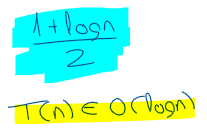 1+logn
2
T(n) ∈ O(logn)